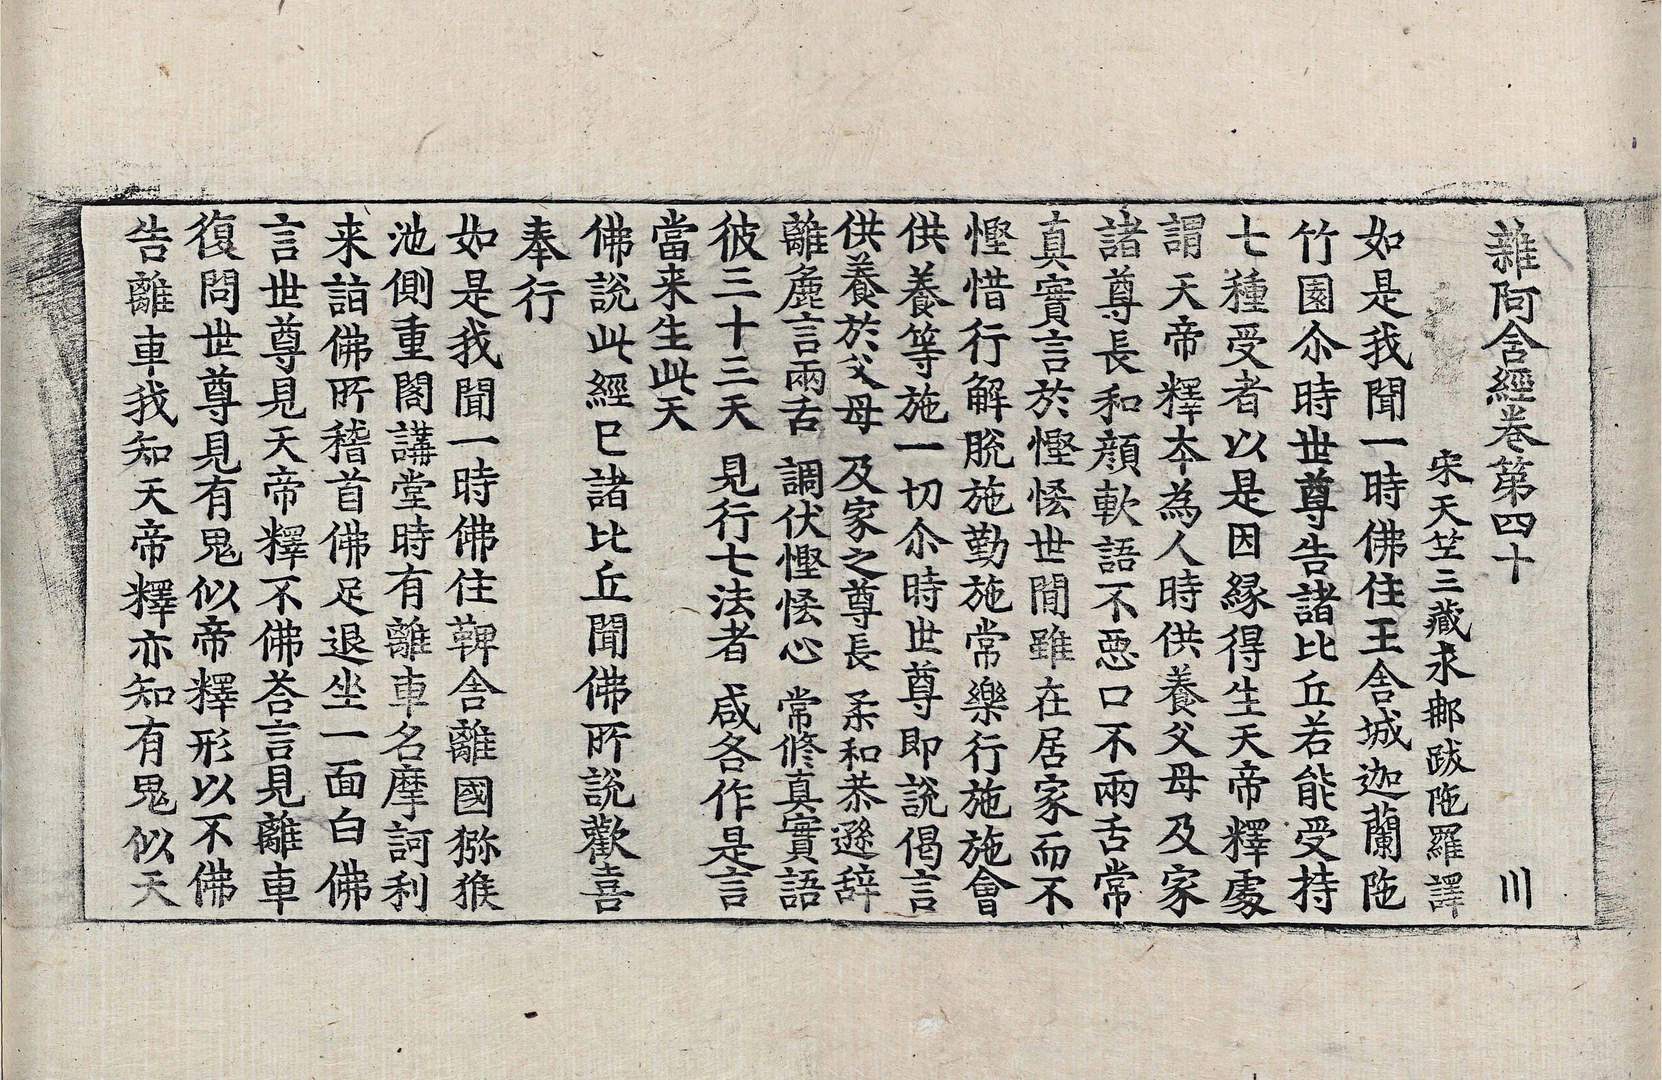 雜阿含經卷第四十 川
宋天竺三藏求郍跋陁羅譯
如是我聞一時佛住王舍城迦蘭陁
竹園尒時世尊告諸比丘若能受持
七種受者以是因縁得生天帝釋處
謂天帝釋夲為人時供養父母及家
諸尊長和顔軟語不惡口不兩舌常
真實言於慳悋世閒雖在居家而不
慳惜行解脫施勤施常樂行施施會
供養等施一切尒時世尊即說偈言
供養於父母 及家之尊長 柔和恭遜辞
離麁言兩舌 調伏慳悋心 常修真實語
彼三十三天 見行七法者 咸各作是言
當来生此天
佛說此經已諸比丘聞佛所說歡喜
奉行
如是我聞一時佛住鞞舍離國獼猴
池側重閣講堂時有離車名摩訶利
来詣佛所稽首佛足退坐一面白佛
言世尊見天帝釋不佛荅言見離車
復問世尊見有鬼似帝釋形以不佛
告離車我知天帝釋亦知有鬼似天